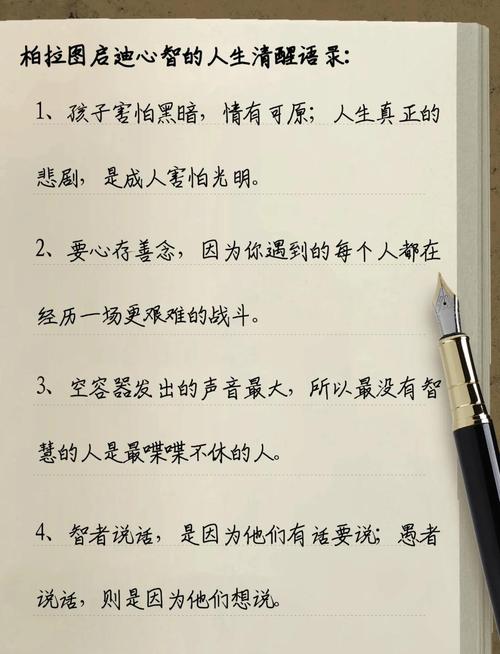 柏拉图启迪心智的人生清醒语录:
1、孩子害怕黑暗，情有可原；人生真正的
悲剧，是成人害怕光明。
2、要心存善念，因为你遇到的每个人都在
经历一场更艰难的战斗。
3、空容器发出的声音最大，所以最没有智
慧的人是最喋喋不休的人。
4、智者说话，是因为他们有话要说；愚者
说话，则是因为他们想说。